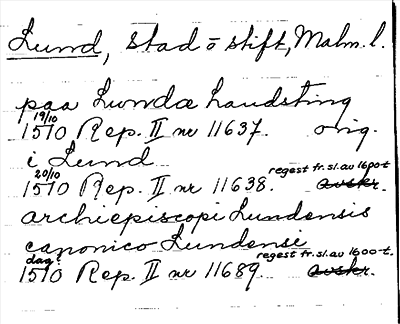 Lund, Stad o stift, Malm. l.
paa Lundæ landsting
19/10
1510 Rep. II nr 11637. orig.
i Lund
20/10 regest fr. sl. av 1600-t
1510 Rep. II nr 11638. avskr.
archiepiscopi Lundensis
canonico Lundensi
dag? regest fr. sl. av 1600-t.
1510 Rep. II nr 11689. avskr.